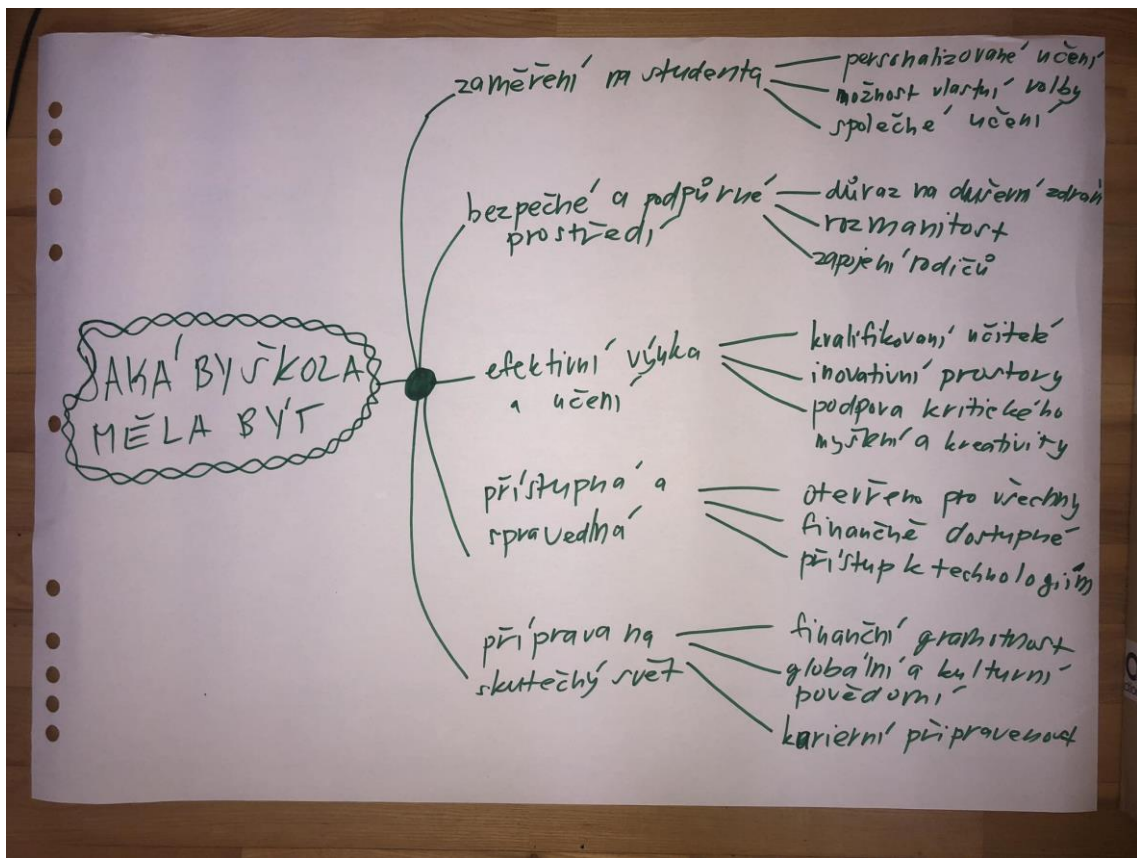 JAKÁ BY ŠKOLA
MĚLA BÝT
zaměření na studenta
personalizované učení
možnost vlastní volby
společné učení
bezpečné a podpůrné
prostředí
důraz na duševní zdraví
rozmanitost
zapojení rodičů
efektivní výuka
a učení
kvalifikovaní učitelé
inovativní prostory
podpora kritického
myšlení a kreativity
přístupná a
spravedlná
otevřeno pro všechny
finančně dostupné
přístup k technologiím
příprava na
skutečný svět
finanční gramotnost
globální a kulturní
povědomí
karierní připravenost